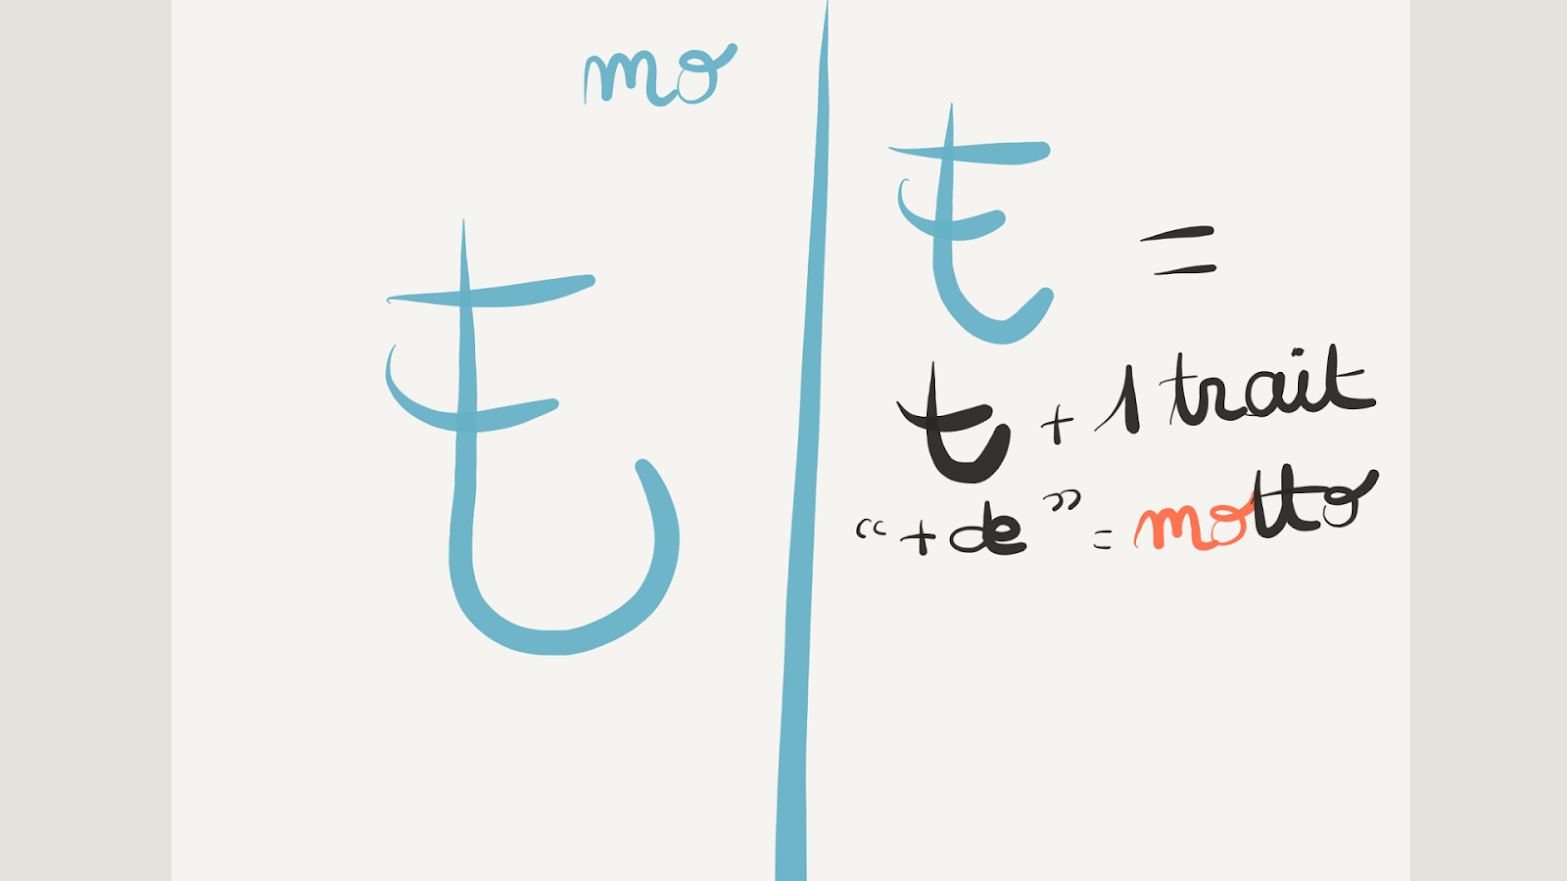 mo
も
も =
t + 1 trait
“ + de ” = motto